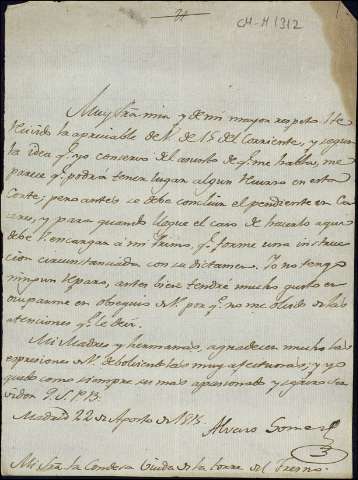 21
CM-M 1312
Muy Sra mia y de mi mayor respeto: He
recivido la apreciable de V. de 15 del Corriente, y segun
la idea q.e yo conservo del asunto de q.e me habla, me
parece q.e podrá tener lugar algun recurso en esta
Corte; pero antes se debe concluir el pendiente en Ca-
ceres, y para quando llegue el caso de hacerlo aqui
debe V. encargar á mi Primo, q.e forme una instruc-
cion circunstanciada con su dictamen. Yo no tengo
ningun reparo, antes bien tendré mucho gusto en
ocuparme en obsequio de V. por q.e no me olvido de las
atenciones q.e le devi.
Mi Madre y hermanas, agradecen mucho las
expresiones de V. debolviendolas muy afectuosas; y yo
quedo como siempre su más apasionado y seguro ser-
vidor Q.S.P.B.
Madrid 22 de Agosto de 1815.
Alvaro Gomez
Mi Sra la Condesa Viuda de la torre del Fresno.